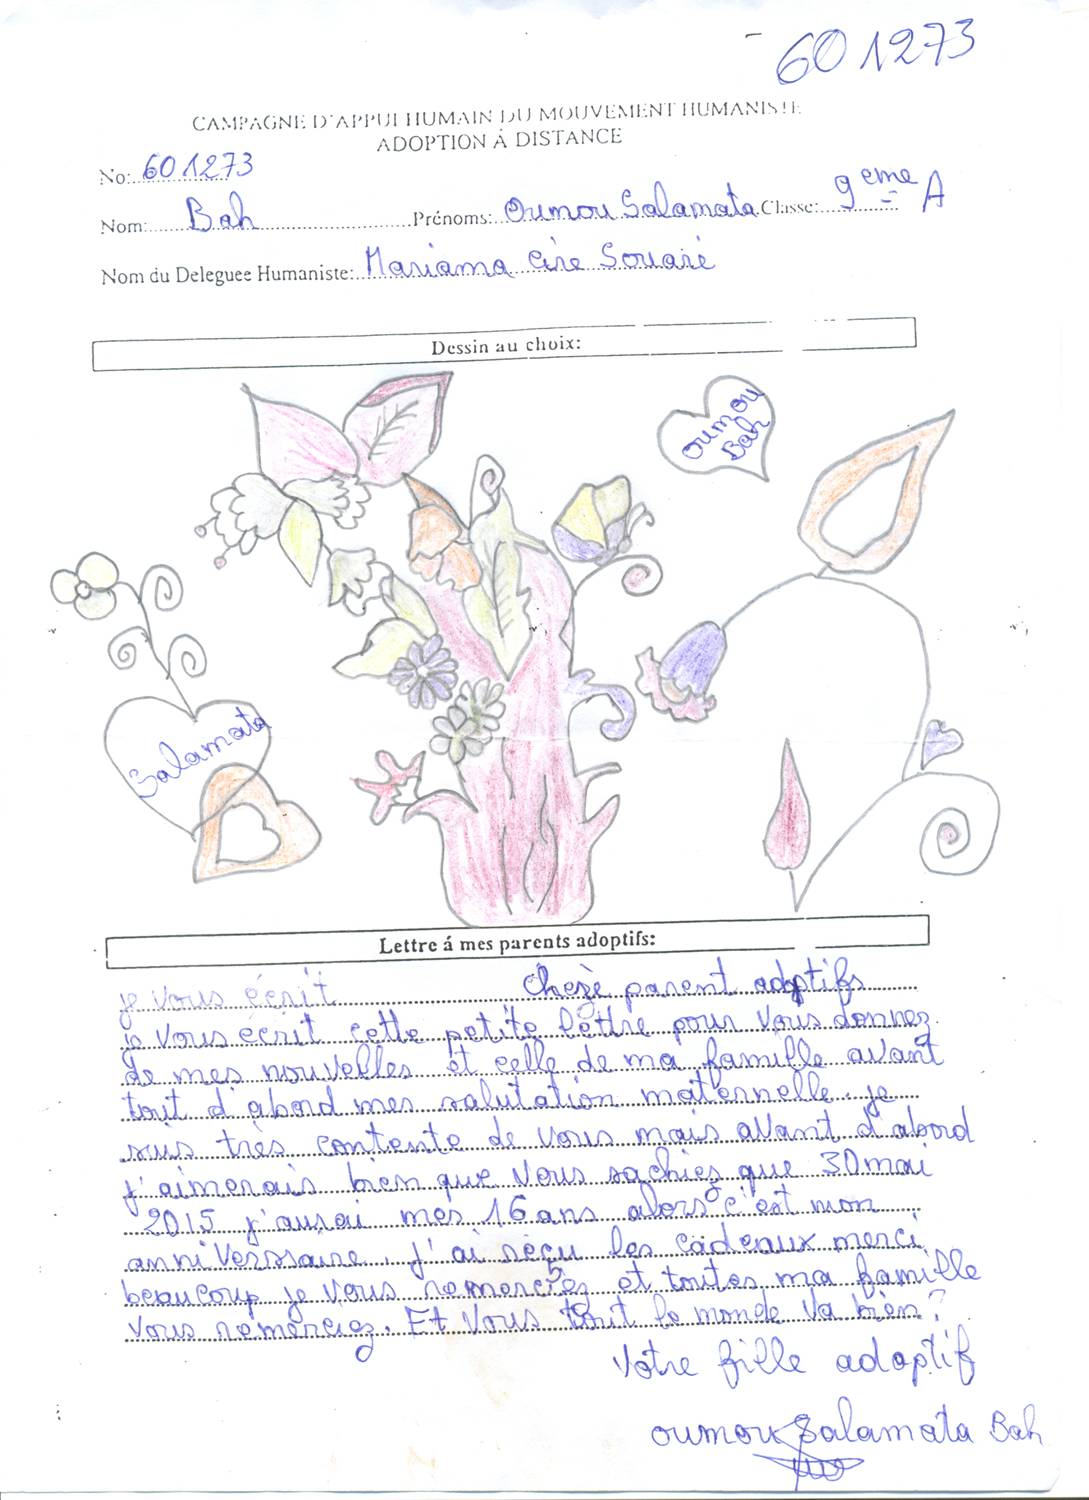 601273
CAMPAGNE D'APPUI HUMAIN DU MOUVEMENT HUMANISTE
ADOPTION Á DISTANCE
No: 601273
Nom: Bah Prénoms: Oumou Salamata Classe: 9eme A
Nom du Deleguee Humaniste: Mariama Cire Souaré
Dessin au choix:
Oumou
Bah
Salamata
Lettre á mes parents adoptifs:
je vous écrit Cherè parent adoptifs
je vous ecrit cette petite lettre pour vous donnez
de mes nouvelles et celle de ma famille avant
tout d'abord mes salutation maternelle. je
suis très contente de vous mais avant d'abord
j'aimerais bien que vous sachiez que 30 mai
2015 j'aurai mes 16 ans alors c'est mon
anniverssaire. j'ai reçu les cadeaux merci
beaucoup je vous et toutes ma famille
vous remerciez. Et vous tout le monde va bien?
Votre fille adoptif
oumou Salamata Bah